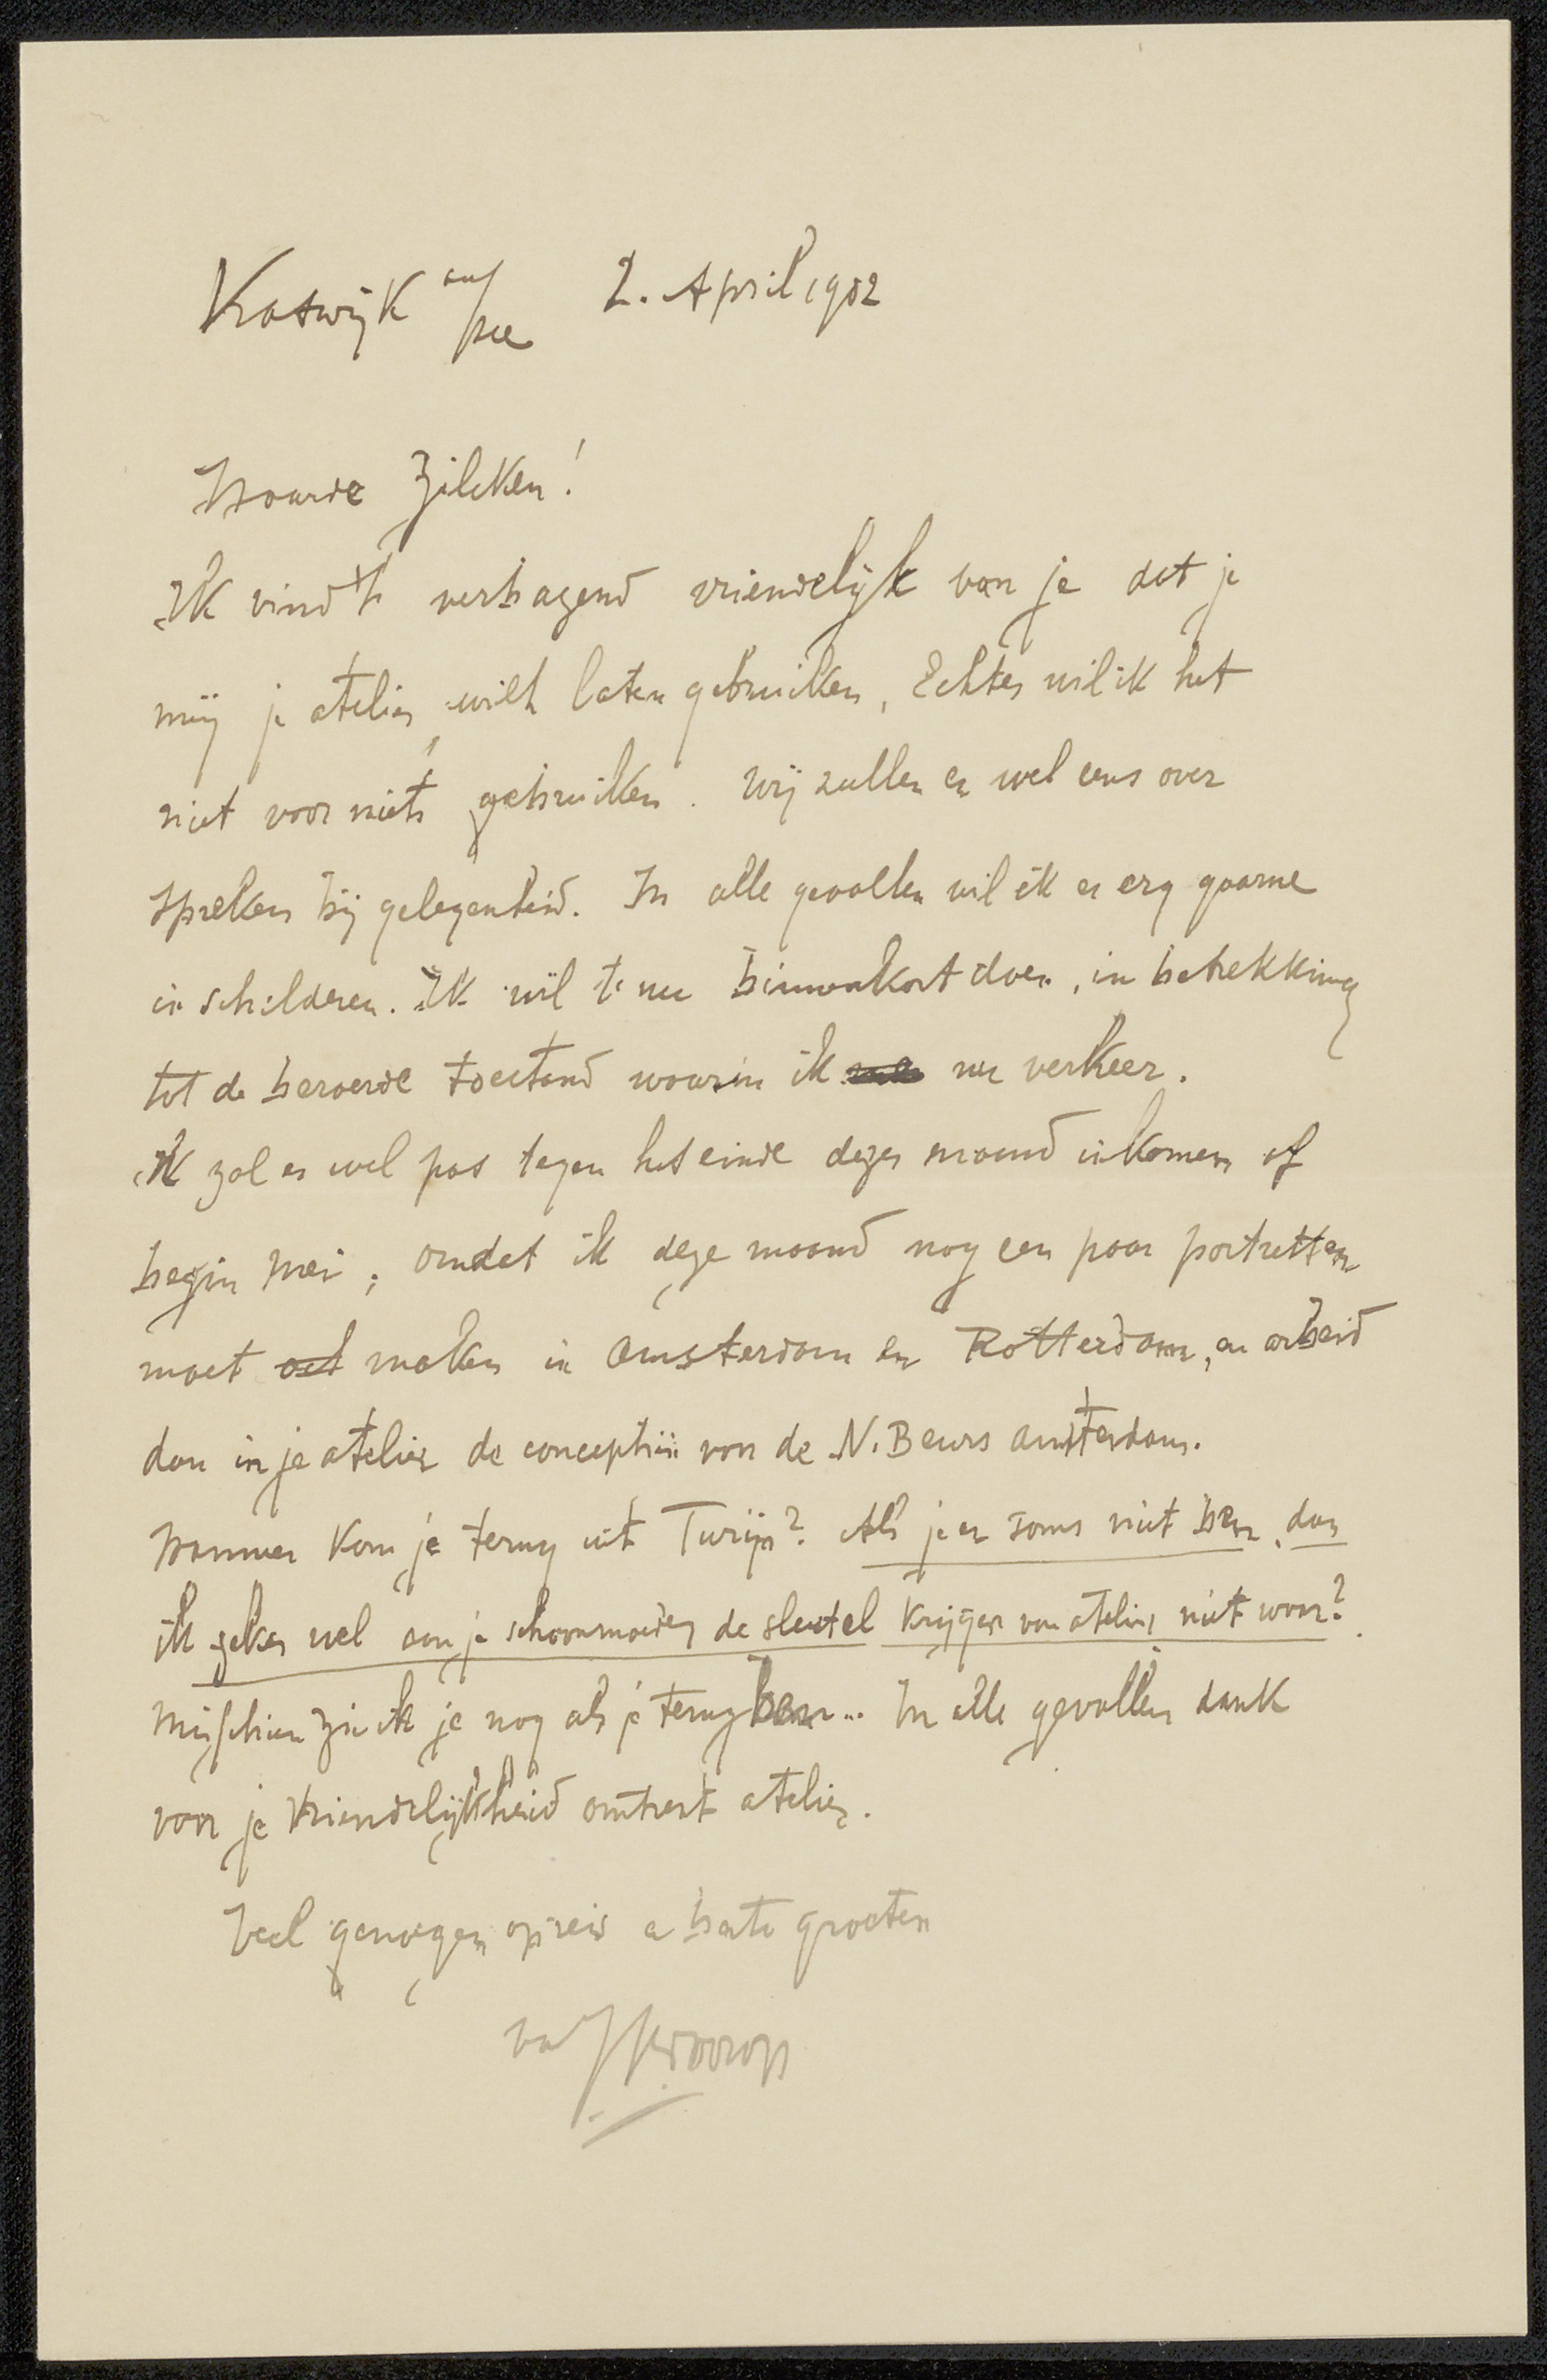 Katwijk aan/zee 2. April 1902
Waarde Zilcken!
Ik vind 't verbazend vriendelijk van je dat je
mij je atelier wilt laten gebruiken, Echter wil ik het
niet voor niets gebruiken. Wij zullen er wel eens over
spreken bij gelegenheid. In alle gevallen wil ik er erg gaarne
in schilderen. Ik wil 't nu binnenkort doen, in betrekking
tot de beroerde toestand waarin ik nu verkeer.
Ik zal er wel pas tegen het einde dezer maand inkomen of
begin Mei, omdat ik deze maand nog een paar portretten
moet ook maken in Amsterdam en Rotterdam, en arbeid
dan in je atelier de conceptiën van de N. Beurs Amsterdam.
Wanneer kom je terug uit Turijn? Als je er soms niet ben, dan
ik zeker wel aan je schoonmoeder de sleutel krijgen van atelier niet waar?
Misschien zie ik je nog als je terug ben... In alle gevallen dank
voor je vriendelijkheid omtrent atelier.
Veel genoegen op reis en beste groeten
van JThToorop